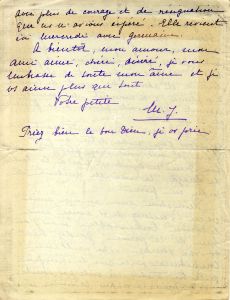 avec plus de courage et de résignation
que ns n'avions espéré. Elle revient
ici mercredi avec germaine.
A bientôt, mon amour, mon
ami aimé, chéri, désiré, je vous
embrasse de toute mon âme et je
vs aime plus que tout
Votre petite
M. J.
Priez bien le bon Dieu, je vs prie